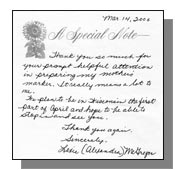 Mar 14, 2000
A Special Note
Thank you so much for
your prompt helpful attention
in preparing my mother's
marker. It really means a lot to
me.
I plan to be in Wisconsin the first
part of April and hope to be able to
stop in and see you.
Thank you again.
Sincerely,
(Alexander)